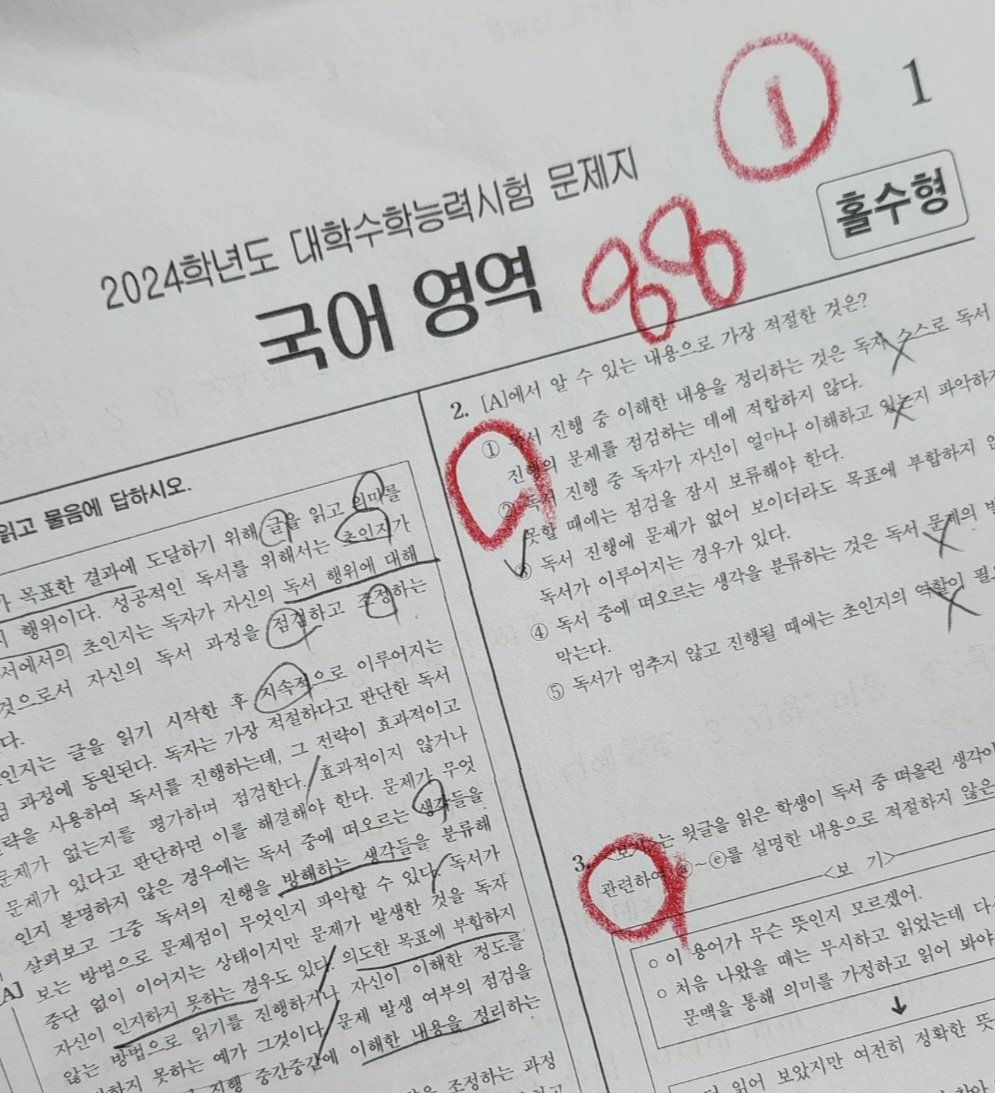 1
①
2024학년도 대학수학능력시험 문제지
홀수형
국어 영역
88
읽고 물음에 답하시오.
목표한 결과에 도달하기 위해 글을 읽고 의미를
행위이다. 성공적인 독서를 위해서는 초인지가
서에서의 초인지는 독자가 자신의 독서 행위에 대해
것으로서 자신의 독서 과정을 점검하고 조정하는
다.
인지는 글을 읽기 시작한 후 지속적으로 이루어지는
과정에 동원된다. 독자는 가장 적절하다고 판단한 독서
략을 사용하여 독서를 진행하는데, 그 전략이 효과적이고
문제가 없는지를 평가하며 점검한다. 효과적이지 않거나
문제가 있다고 판단하면 이를 해결해야 한다. 문제가 무엇
인지 분명하지 않은 경우에는 독서 중에 떠오르는 생각들을
살펴보고 그중 독서의 진행을 방해하는 생각들을 분류해
보는 방법으로 문제점이 무엇인지 파악할 수 있다. 독서가
중단 없이 이어지는 상태이지만 문제가 발생한 것을 독자
자신이 인지하지 못하는 경우도 있다. 의도한 목표에 부합하지
않는 방법으로 읽기를 진행하거나 자신이 이해한 정도를
하지 못하는 예가 그것이다. 문제 발생 여부의 점검을
진행 중간중간에 이해한 내용을 정리하는
조정하는 과정
[A]
2. [A]에서 알 수 있는 내용으로 가장 적절한 것은?
① 독서 진행 중 이해한 내용을 정리하는 것은 독자 스스로 독서
진행의 문제를 점검하는 데에 적합하지 않다.
② 독서 진행 중 독자가 자신이 얼마나 이해하고 있는지 파악하지
못할 때에는 점검을 잠시 보류해야 한다.
③ 독서 진행에 문제가 없어 보이더라도 목표에 부합하지 않
독서가 이루어지는 경우가 있다.
④ 독서 중에 떠오르는 생각을 분류하는 것은 독서 문제의
막는다.
⑤ 독서가 멈추지 않고 진행될 때에는 초인지의 역할이
3. <보기>는 윗글을 읽은 학생이 독서 중 떠올린 생각이
관련하여 ⓐ~ⓔ를 설명한 내용으로 적절하지 않은
<보 기>
○ 이 용어가 무슨 뜻인지 모르겠어.
○ 처음 나왔을 때는 무시하고 읽었는데 다
문맥을 통해 의미를 가정하고 읽어 봐야
↓
읽어 보았지만 여전히 정확한 뜻